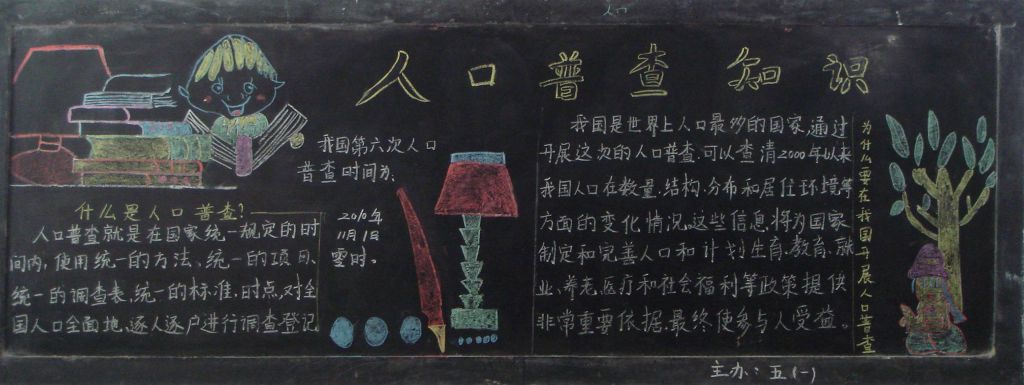 人口普查知识
什么是人口普查?
人口普查就是在国家统一规定的时
间内,使用统一的方法、统一的项目、
统一的调查表、统一的标准,时点,对全
国人口全面地、逐人逐户进行调查登记
我国第六次人口
普查时间为:
2010年
11月1日
零时。
我国是世界上人口最多的国家,通过
开展这次的人口普查,可以查清2000年以来
我国人口在数量、结构、分布和居住环境等
方面的变化情况。这些信息,将为国家
制定和完善人口和计划生育、教育、就
业、养老、医疗和社会福利等政策提供
非常重要依据,最终使参与人受益。
为什么要在我国开展人口普查
主办:五(一)